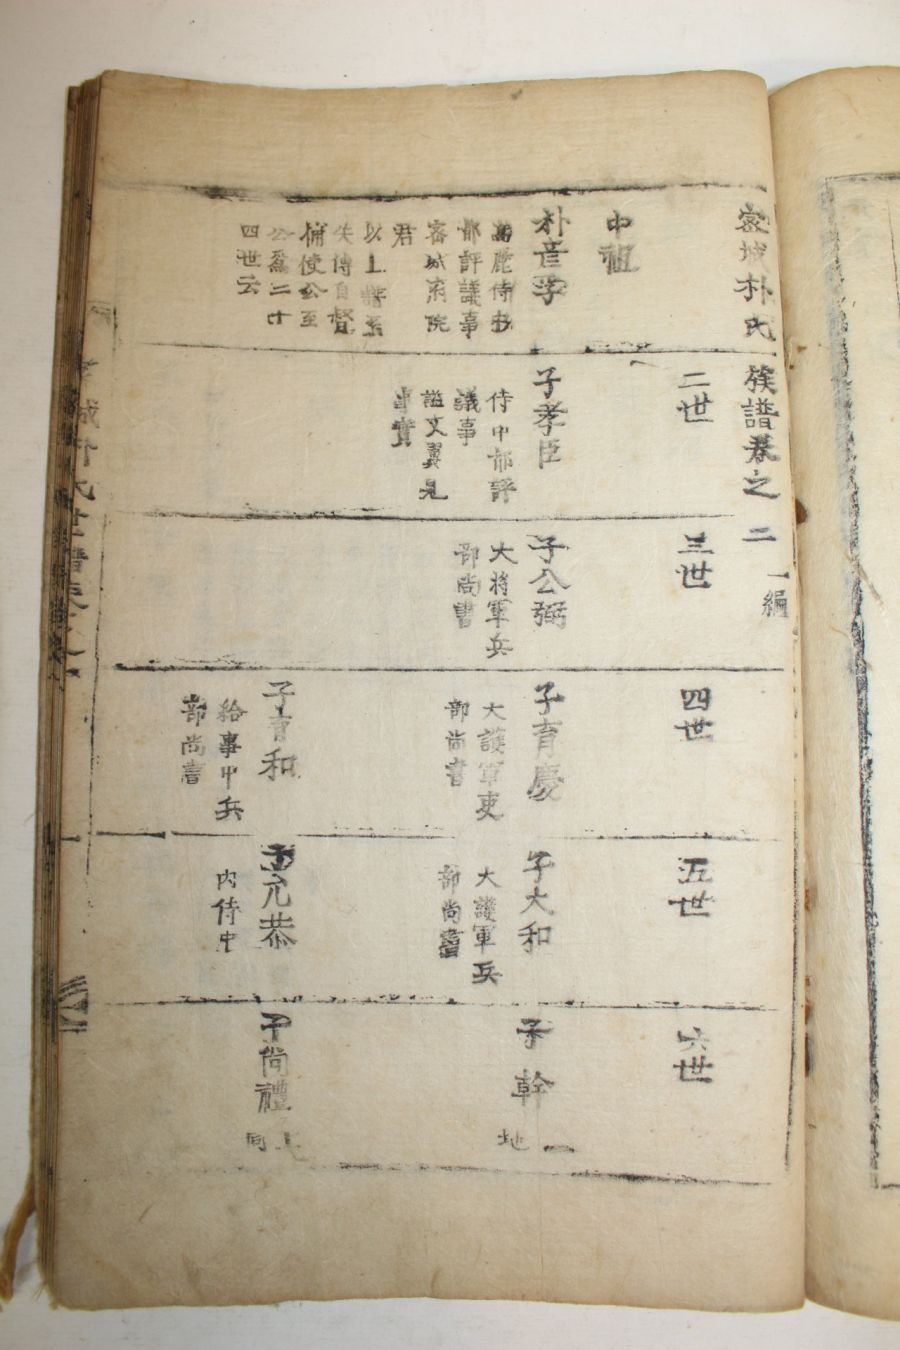 密城朴氏族譜卷之二 一編
中祖
朴彦孚
高麗侍中
都評議事
密城府院
君
以上譜系
失傳自督
捕使公至
公爲二十
四世云
二世
子孝臣
侍中都評
議事
謚文翼見
事實
三世
子公弼
大將軍兵
部尚書
四世
子育慶
大護軍吏
部尚書
子育和
給事中兵
部尚書
五世
子大和
大護軍兵
部尚書
子允恭
內侍史
六世
子幹
一
地
子尚禮
上
同
城朴氏世譜卷之
一